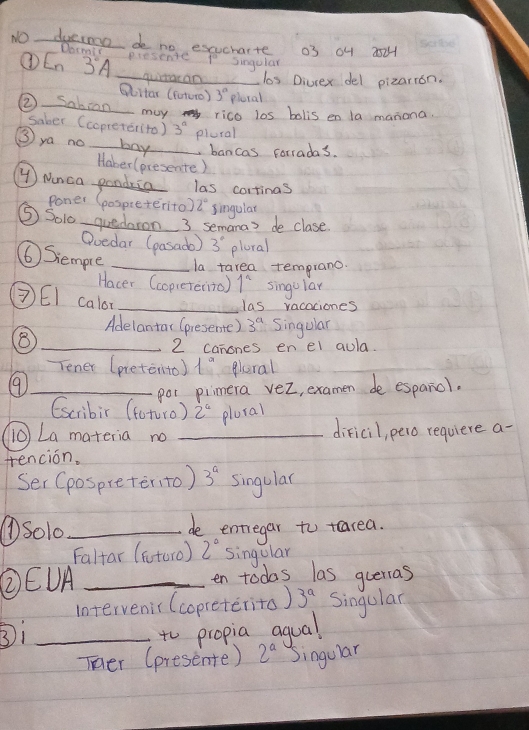 NO ducimo de no escucharte 03 04 2024 Scribe
Dormir presente 1º singular
① En 3ºA quitaran los Diurex del pizarrón.
Quitar (futuro) 3º plural
② Sabian muy rico los bolis en la mañana.
Saber (copretérito) 3ª plural
③ ya no hay bancas forradas.
Haber (presente)
④ Nunca pondria las cortinas
Poner (pospretérito) 2ª singular
⑤ Solo quedaron 3 semanas de clase.
Quedar (pasado) 3ª plural
⑥ Siempre ______ la tarea temprano.
Hacer (copreterito) 1ª singular
⑦ El calor ______ las vacaciones
Adelantar (presente) 3ª Singular
⑧ ______ 2 cañones en el aula.
Tener (pretérito) 1ª plural
⑨ ______ por primera vez, examen de español.
Escribir (futuro) 2ª plural
⑩ La materia no ______ dificil, pero requiere a-
tención.
Ser (pospretérito) 3ª singular
① Solo ______ de entregar tu tarea.
Faltar (futuro) 2ª singular
② EUA ______ en todas las guerras
Intervenir (copretérito) 3ª Singular
③ ¡ ______ tu propia agua!
Traer (presente) 2ª Singular